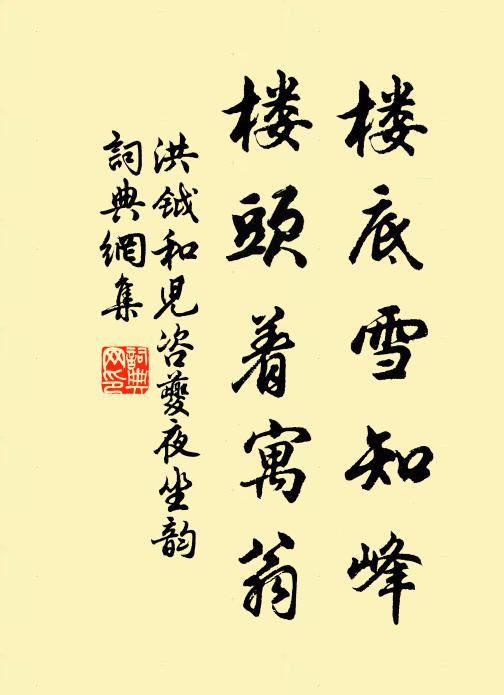 楼底雪知峰
楼頭着寓翁
洪钺和児咨夔夜坐韵
詞典網集
詞典網印